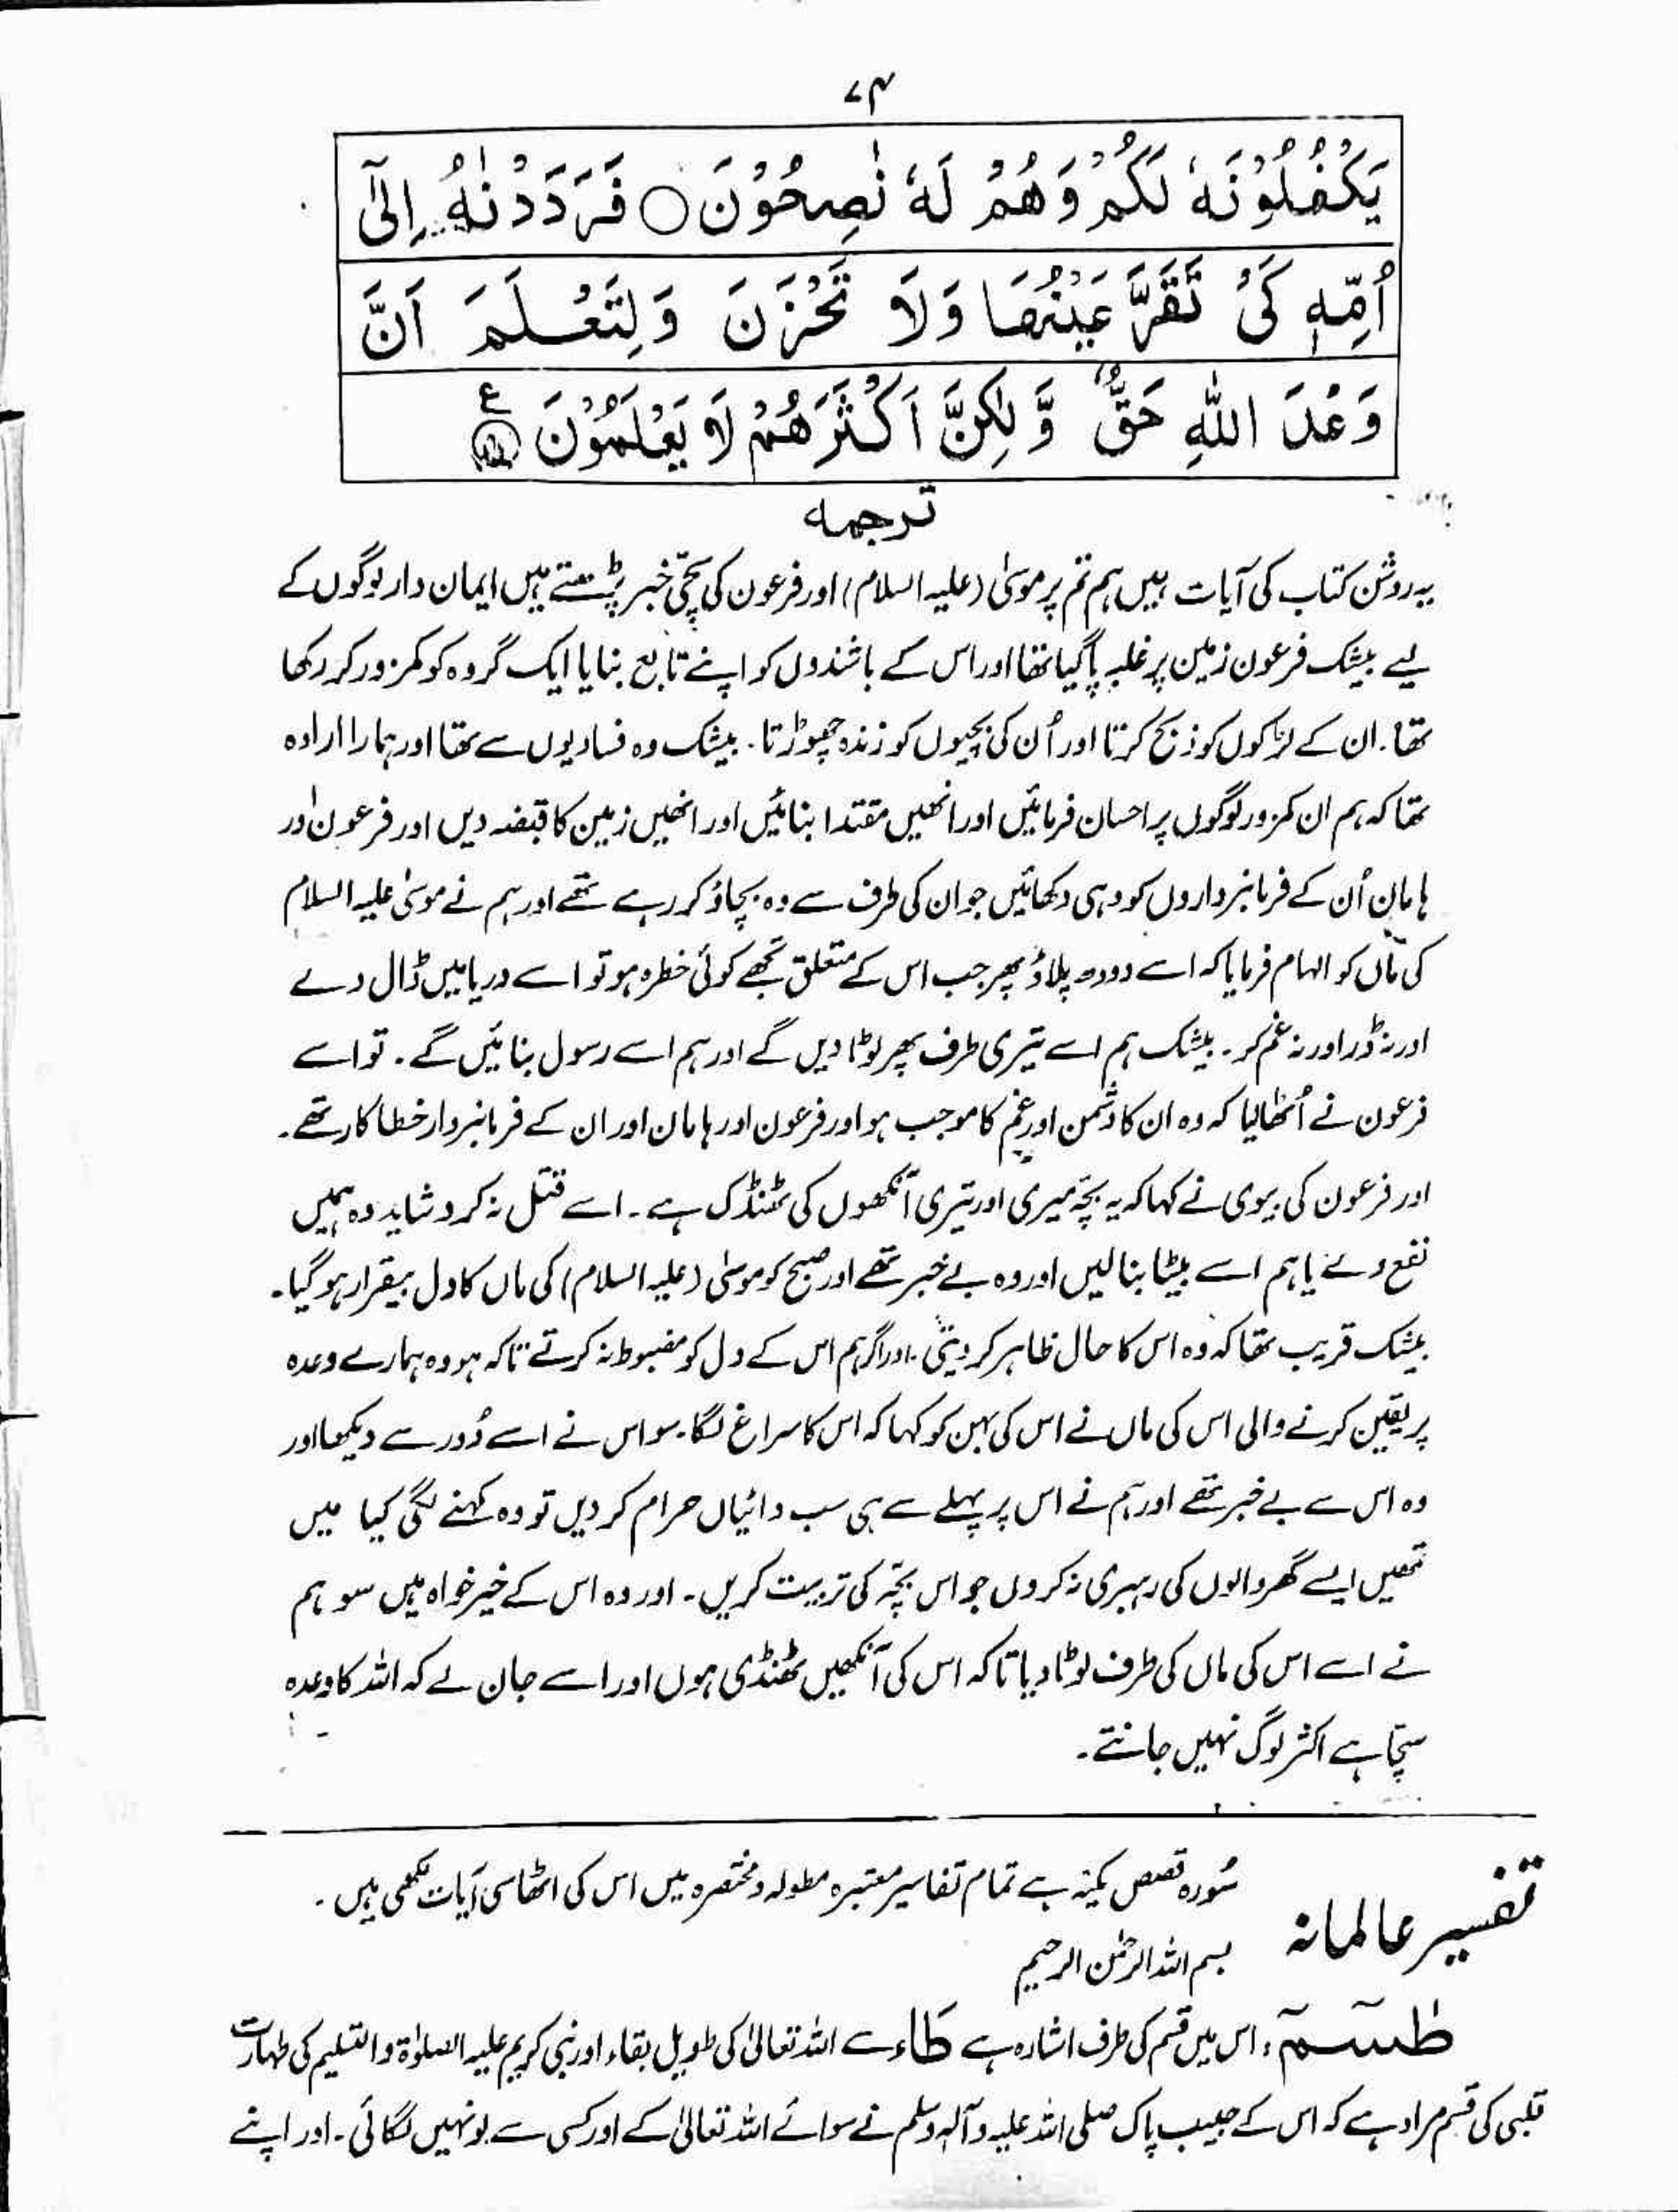 ۷۴
يَكْفُلُوْنَهٗ لَكُمْ وَهُمْ لَهٗ نٰصِحُوْنَ ○ فَرَدَدْنٰهُ اِلٰٓى
اُمِّهٖ كَىْ تَقَرَّ عَيْنُهَا وَلَا تَحْزَنَ وَلِتَعْلَمَ اَنَّ
وَعْدَ اللّٰهِ حَقٌّ وَّلٰكِنَّ اَكْثَرَهُمْ لَا يَعْلَمُوْنَ ع
ترجمہ
یہ روشن کتاب کی آیات ہیں ہم تم پر موسیٰ (علیہ السلام) اور فرعون کی سچّی خبر پڑھتے ہیں ایمان دار لوگوں کے
لیے بیشک فرعون زمین پر غلبہ پا گیا تھا اور اس کے باشندوں کو اپنے تابع بنایا ایک گروہ کو کمزور کر رکھا
تھا۔ ان کے لڑکوں کو ذبح کرتا اور اُن کی بچیوں کو زندہ چھوڑتا۔ بیشک وہ فسادیوں سے تھا اور ہمارا ارادہ
تھا کہ ہم ان کمزور لوگوں پر احسان فرمائیں اور انھیں مقتدا بنائیں اور انھیں زمین کا قبضہ دیں اور فرعون اور
ہامان اُن کے فرمانبرداروں کو وہی دکھائیں جو ان کی طرف سے وہ بچاؤ کر رہے تھے اور ہم نے موسیٰ علیہ السلام
کی ماں کو الہام فرمایا کہ اسے دودھ پلاؤ پھر جب اس کے متعلق تجھے کوئی خطرہ ہو تو اسے دریا میں ڈال دے
اور نہ ڈر اور نہ غم کر۔ بیشک ہم اسے تیری طرف پھر لوٹا دیں گے اور ہم اسے رسول بنائیں گے۔ تو اسے
فرعون نے اُٹھا لیا کہ وہ ان کا دشمن اور غم کا موجب ہو اور فرعون اور ہامان اور ان کے فرمانبردار خطا کار تھے۔
اور فرعون کی بیوی نے کہا کہ یہ بچّہ میری اور تیری آنکھوں کی ٹھنڈک ہے۔ اسے قتل نہ کرو شاید وہ ہمیں
نفع دے یا ہم اسے بیٹا بنا لیں اور وہ بے خبر تھے اور صبح کو موسیٰ (علیہ السلام) کی ماں کا دل بیقرار ہو گیا۔
بیشک قریب تھا کہ وہ اس کا حال ظاہر کر دیتی۔ اور اگر ہم اس کے دل کو مضبوط نہ کرتے تاکہ ہو وہ ہمارے وعدہ
پر یقین کرنے والی اس کی ماں نے اس کی بہن کو کہا کہ اس کا سراغ لگا۔ سو اس نے اسے دُور سے دیکھا اور
وہ اس سے بے خبر تھے اور ہم نے اس پر پہلے سے ہی سب دائیاں حرام کر دیں تو وہ کہنے لگی کیا میں
تمھیں ایسے گھر والوں کی رہبری نہ کروں جو اس بچّہ کی تربیت کریں۔ اور وہ اس کے خیر خواہ ہیں سو ہم
نے اسے اس کی ماں کی طرف لوٹا دیا تاکہ اس کی آنکھیں ٹھنڈی ہوں اور اسے جان لے کہ اللہ کا وعدہ
سچّا ہے اکثر لوگ نہیں جانتے۔
تفسیر عالمانہ
سُورہ قصص مکیّہ ہے تمام تفاسیر معتبرہ مطولہ و مختصرہ میں اس کی اٹھاسی آیات لکھی ہیں۔
بسم اللہ الرحمٰن الرحیم
طٰسٓمٓ، اس میں قسم کی طرف اشارہ ہے طاء سے اللہ تعالیٰ کی طویل بقاء اور نبی کریم علیہ الصلوٰۃ والتسلیم کی طہارت
قلبی کی قسم مراد ہے کہ اس کے حبیب پاک صلی اللہ علیہ وآلہ وسلم نے سوائے اللہ تعالیٰ کے اور کسی سے لو نہیں لگائی۔ اور اپنے